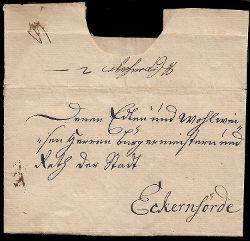 Denen Edlen und Wohlwei
sen Herren bürgermeistern und
Rath der Stadt
Eckernförde